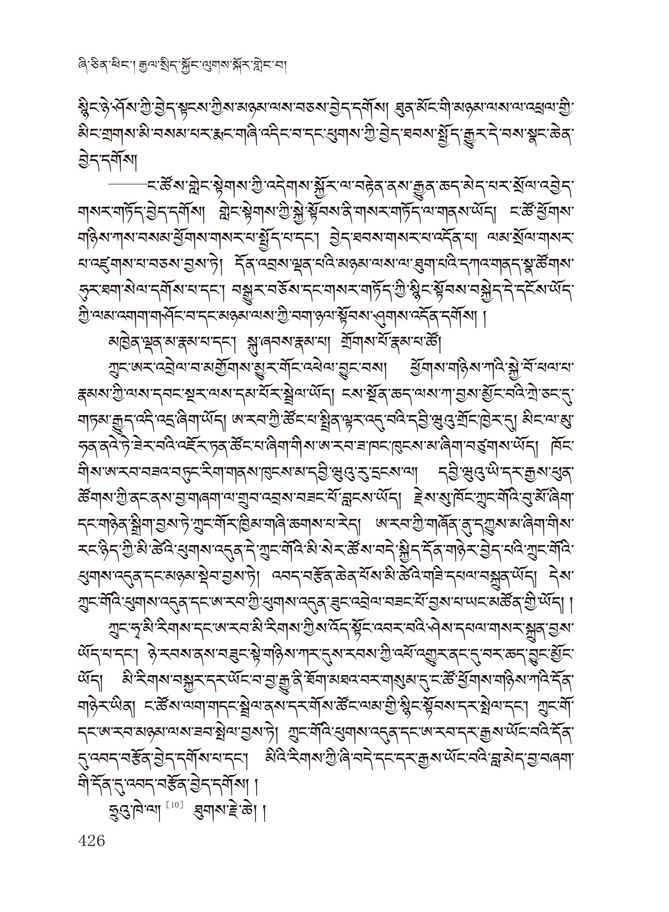 ཞི་ཅིན་ཕིང་། རྒྱལ་སྲིད་སྐྱོང་ལུགས་སྐོར་གླེང་བ།
སྙིང་ཉེ་ཤོས་ཀྱི་བྱེད་སྟངས་ཀྱིས་མཉམ་ལས་བཅས་བྱེད་དགོས། ཐུན་མོང་གི་མཉམ་ལས་ལ་འཕྲལ་གྱི་
མིང་གྲགས་མི་བསམ་པར་རྨང་གཞི་འདིང་བ་དང་ཕུགས་ཀྱི་བྱེད་ཐབས་སྤྱོད་རྒྱུར་དེ་བས་སྣང་ཆེན་
བྱེད་དགོས།
———ང་ཚོས་གླེང་སྟེགས་ཀྱི་འདེགས་སྐྱོར་ལ་བརྟེན་ནས་རྒྱུན་ཆད་མེད་པར་སྲོལ་འབྱེད་
གསར་གཏོད་བྱེད་དགོས། གླེང་སྟེགས་ཀྱི་སྐྱེ་སྟོབས་ནི་གསར་གཏོད་ལ་གནས་ཡོད། ང་ཚོ་ཕྱོགས་
གཉིས་ཀས་བསམ་ཕྱོགས་གསར་པ་སྤྱོད་པ་དང་། བྱེད་ཐབས་གསར་པ་འདོན་པ། ལམ་སྲོལ་གསར་
པ་འཛུགས་པ་བཅས་བྱས་ཏེ། དོན་འབྲས་ལྡན་པའི་མཉམ་ལས་ལ་ཐུག་པའི་དཀའ་གནད་སྣ་ཚོགས་
ཧུར་ཐག་སེལ་དགོས་པ་དང་། བསྒྱུར་བཅོས་དང་གསར་གཏོད་ཀྱི་སྙིང་སྟོབས་བསྐྱེད་དེ་དངོས་ཡོད་
ཀྱི་ལམ་འགག་གཤོང་བ་དང་མཉམ་ལས་ཀྱི་བག་ཉལ་སྟོབས་ཤུགས་འདོན་དགོས། །
མཁྱེན་ལྡན་མ་རྣམ་པ་དང་། སྐུ་ཞབས་རྣམ་པ། གྲོགས་པོ་རྣམ་པ་ཚོ།
ཀྲུང་ཨར་འབྲེལ་བ་མགྱོགས་མྱུར་གོང་འཕེལ་བྱུང་བས། ཕྱོགས་གཉིས་ཀའི་སྐྱེ་བོ་ཕལ་པ་
རྣམས་ཀྱི་ལས་དབང་སྔར་ལས་དམ་པོར་སྦྲེལ་ཡོད། ངས་སྔོན་ཆད་ལས་ཀ་བྱས་མྱོང་བའི་ཀྲེ་ཅང་དུ་
གཏམ་རྒྱུད་འདི་འདྲ་ཞིག་ཡོད། ཨ་རབ་ཀྱི་ཚོང་པ་སྤྲིན་ལྟར་འདུ་བའི་དབྱི་ཝུའུ་གྲོང་ཁྱེར་དུ། མིང་ལ་མུ་
ཧན་ནའེ་ཏེ་ཟེར་བའི་འཇོར་ཏན་ཚོང་པ་ཞིག་གིས་ཨ་རབ་ཟ་ཁང་ཁུངས་མ་ཞིག་བཙུགས་ཡོད། ཁོང་
གིས་ཨ་རབ་བཟའ་བཏུང་རིག་གནས་ཁུངས་མ་དབྱི་ཝུའུ་རུ་དྲངས་ལ། དབྱི་ཝུའུ་ཡི་དར་རྒྱས་ཕུན་
ཚོགས་ཀྱི་ནང་ནས་བྱ་གཞག་ལ་གྲུབ་འབྲས་བཟང་པོ་བླངས་ཡོད། རྗེས་སུ་ཁོང་ཀྲུང་གོའི་བུ་མོ་ཞིག་
དང་གཉེན་སྒྲིག་བྱས་ཏེ་ཀྲུང་གོར་ཁྱིམ་གཞི་ཆགས་པ་རེད། ཨ་རབ་ཀྱི་གཞོན་ནུ་དཀྱུས་མ་ཞིག་གིས་
རང་ཉིད་ཀྱི་མི་ཚེའི་ཕུགས་འདུན་དེ་ཀྲུང་གོའི་མི་སེར་ཚོས་བདེ་སྐྱིད་དོན་གཉེར་བྱེད་པའི་ཀྲུང་གོའི་
ཕུགས་འདུན་དང་མཉམ་སྡེབ་བྱས་ཏེ། འབད་བརྩོན་ཆེན་པོས་མི་ཚེའི་གཟི་དཔལ་བསྐྲུན་ཡོད། དེས་
ཀྲུང་གོའི་ཕུགས་འདུན་དང་ཨ་རབ་ཀྱི་ཕུགས་འདུན་ཟུང་འབྲེལ་བཟང་པོ་བྱས་པ་ཡང་མཚོན་གྱི་ཡོད། །
ཀྲུང་ཧྭ་མི་རིགས་དང་ཨ་རབ་མི་རིགས་ཀྱིས་འོད་སྟོང་འབར་བའི་ཤེས་དཔལ་གསར་སྐྲུན་བྱས་
ཡོད་པ་དང་། ཉེ་རབས་ནས་བཟུང་སྟེ་གཉིས་ཀར་དུས་རབས་ཀྱི་འཕོ་འགྱུར་ནང་དུ་བར་ཆད་བྱུང་མྱོང་
ཡོད། མི་རིགས་བསྐྱར་དར་ཡོང་བ་བྱ་རྒྱུ་ནི་ཐོག་མཐའ་བར་གསུམ་དུ་ང་ཚོ་ཕྱོགས་གཉིས་ཀའི་དོན་
གཉེར་ཡིན། ང་ཚོས་ལག་གདང་སྦྲེལ་ནས་དར་གོས་ཚོང་ལམ་གྱི་སྙིང་སྟོབས་དར་སྤེལ་དང་། ཀྲུང་གོ་
དང་ཨ་རབ་མཉམ་ལས་ཟབ་སྤེལ་བྱས་ཏེ། ཀྲུང་གོའི་ཕུགས་འདུན་དང་ཨ་རབ་དར་རྒྱས་ཡོང་བའི་དོན་
དུ་འབད་བརྩོན་བྱེད་དགོས་པ་དང་། མིའི་རིགས་ཀྱི་ཞི་བདེ་དང་དར་རྒྱས་ཡོང་བའི་བླ་མེད་བྱ་བཞག་
གི་དོན་དུ་འབད་བརྩོན་བྱེད་དགོས། །
ཧྲུའུ་ཁེ་ལ། [10] ཐུགས་རྗེ་ཆེ། །
426